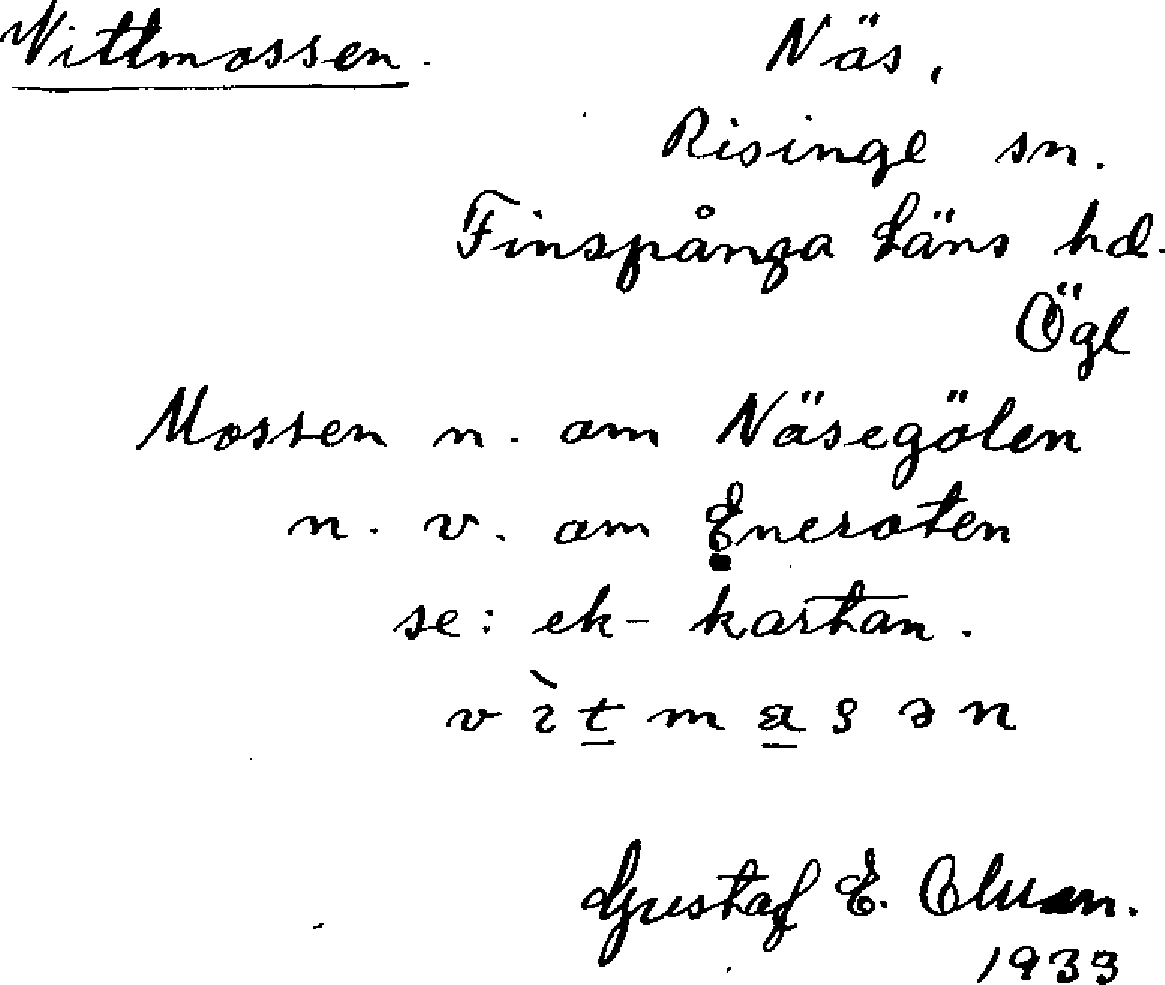 Vittmossen. Näs,
Risinge sn.
Finspånga Läns hd.
Ögl
Mossen n. om Näsegölen
n. v. om Eneroten
se: ek-kartan.
Gustaf E.
1933